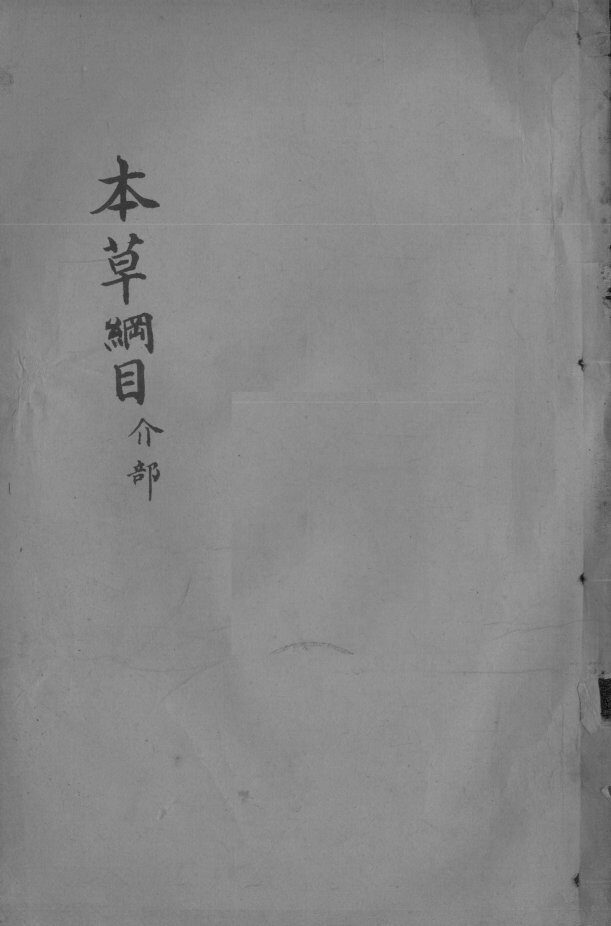 本草綱目
介部